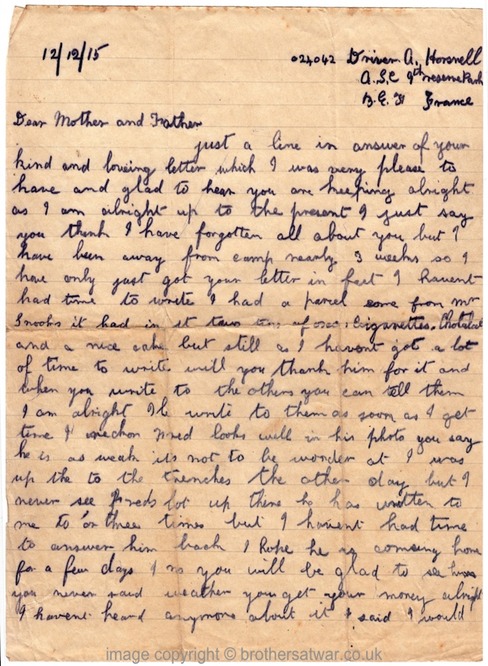 12/12/15
024042 Driver A. Horsnell
A.S.C 9th reserve Park
B.E.F France
Dear Mother and Father
just a line in answer of your
kind and loveing letter which I was very please to
have and glad to hear you are keeping alright
as I am alright up to the present I just say
you think I have forgotten all about you but I
have been away from camp nearly 3 weeks so I
have only just got your letter in fact I havent
had time to write I had a parcel come from Mr
it had in it two Cigarettes, Chocolate
and a nice cake but still as I havent got a lot
of time to write will you thank him for it and
when you write to the others you can tell them
I am alright Ill write to them as soon as I get
time I reckon Fred looks well in his photo you say
he is as weak its not to be wonder at I was
up the to the trenches the other day but I
never see Freds lot up there he has written to
me to or three times but I havent had time
to answer him back I Hope he is comeing home
for a few days I no you will be glad to see him
you never said weather you get your money alright
I havent heard anymore about it I said I would
image copyright © brothersatwar.co.uk